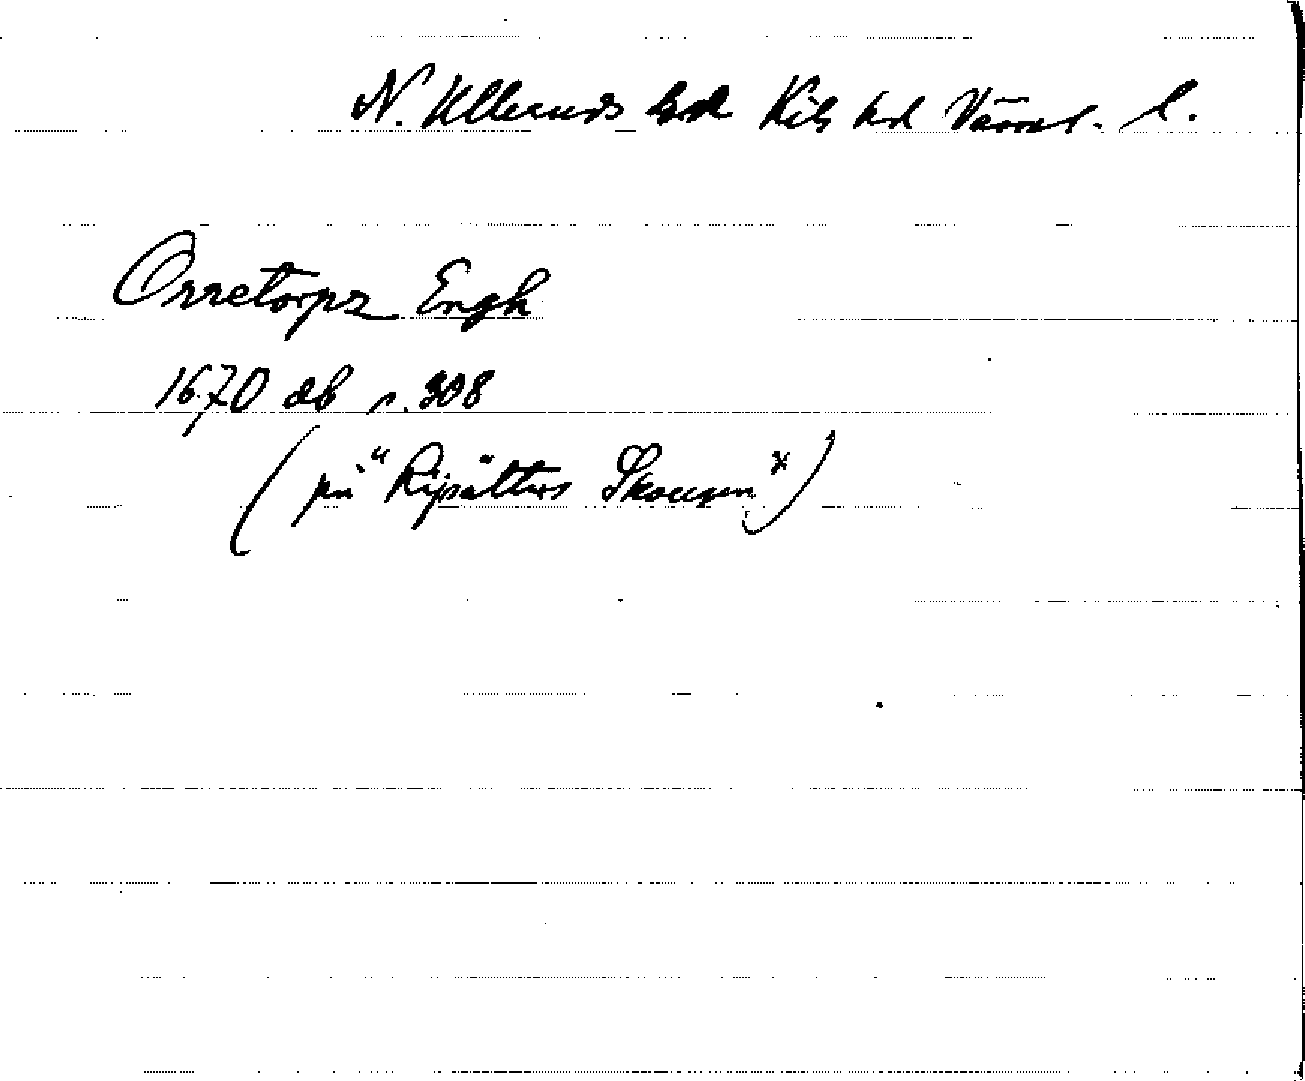 N. Ulleruds sn Kils hd Värml. l.
Orretorpz Engh
1670 db s. 308
(på "Ripälters Skougen")